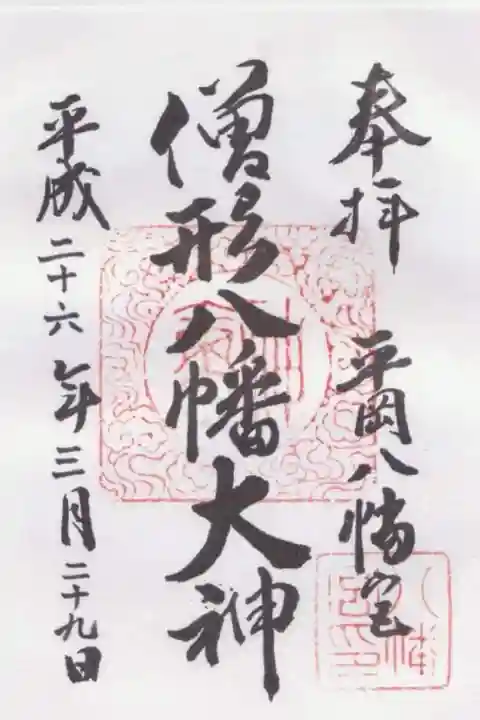 奉拝 平岡八幡宮
僧形八幡大神
平成二十六年三月二十九日